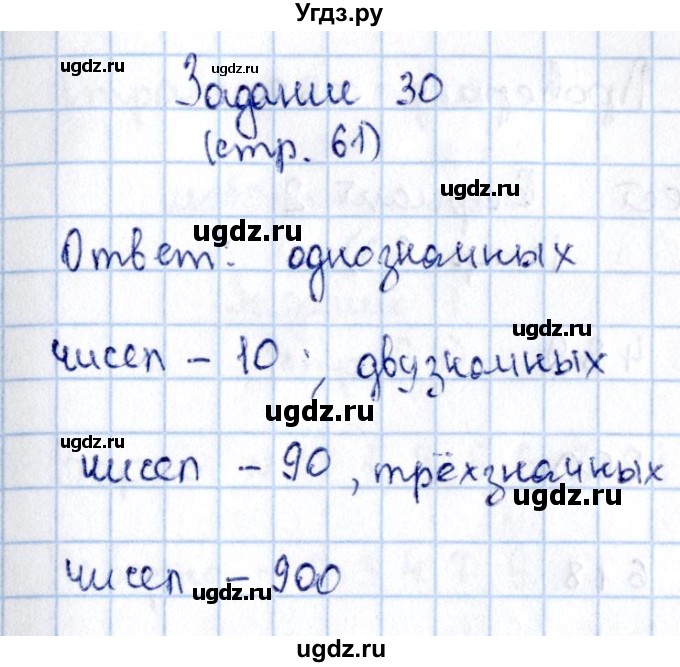 Угдз.ру
ugdz.ru ugdz.ru
Задание 30
(стр. 61)
ugdz.ru
ugdz.ru
Ответ: однозначных
ugdz.ru
чисел – 10 ; двузначных
ugdz.ru
ugdz.ru
чисел – 90, трёхзначных
ugdz.ru
чисел – 900
ugdz.ru
ugdz.ru ugdz.ru